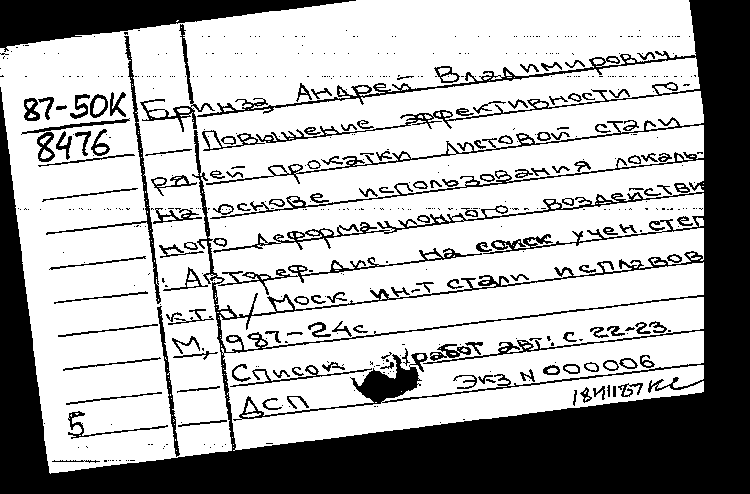 87-50К
8476
Бринза Андрей Владимирович.
Повышение эффективности го-
рячей прокатки листовой стали
на основе использования локаль-
ного деформационного воздействи
: Автореф. дис. на соиск. учен. степ
к.т.н. / Моск. ин-т стали и сплавов
М., 1987.-24с.
Список работ авт.: с. 22-23.
ДСП Экз. N 000006
5